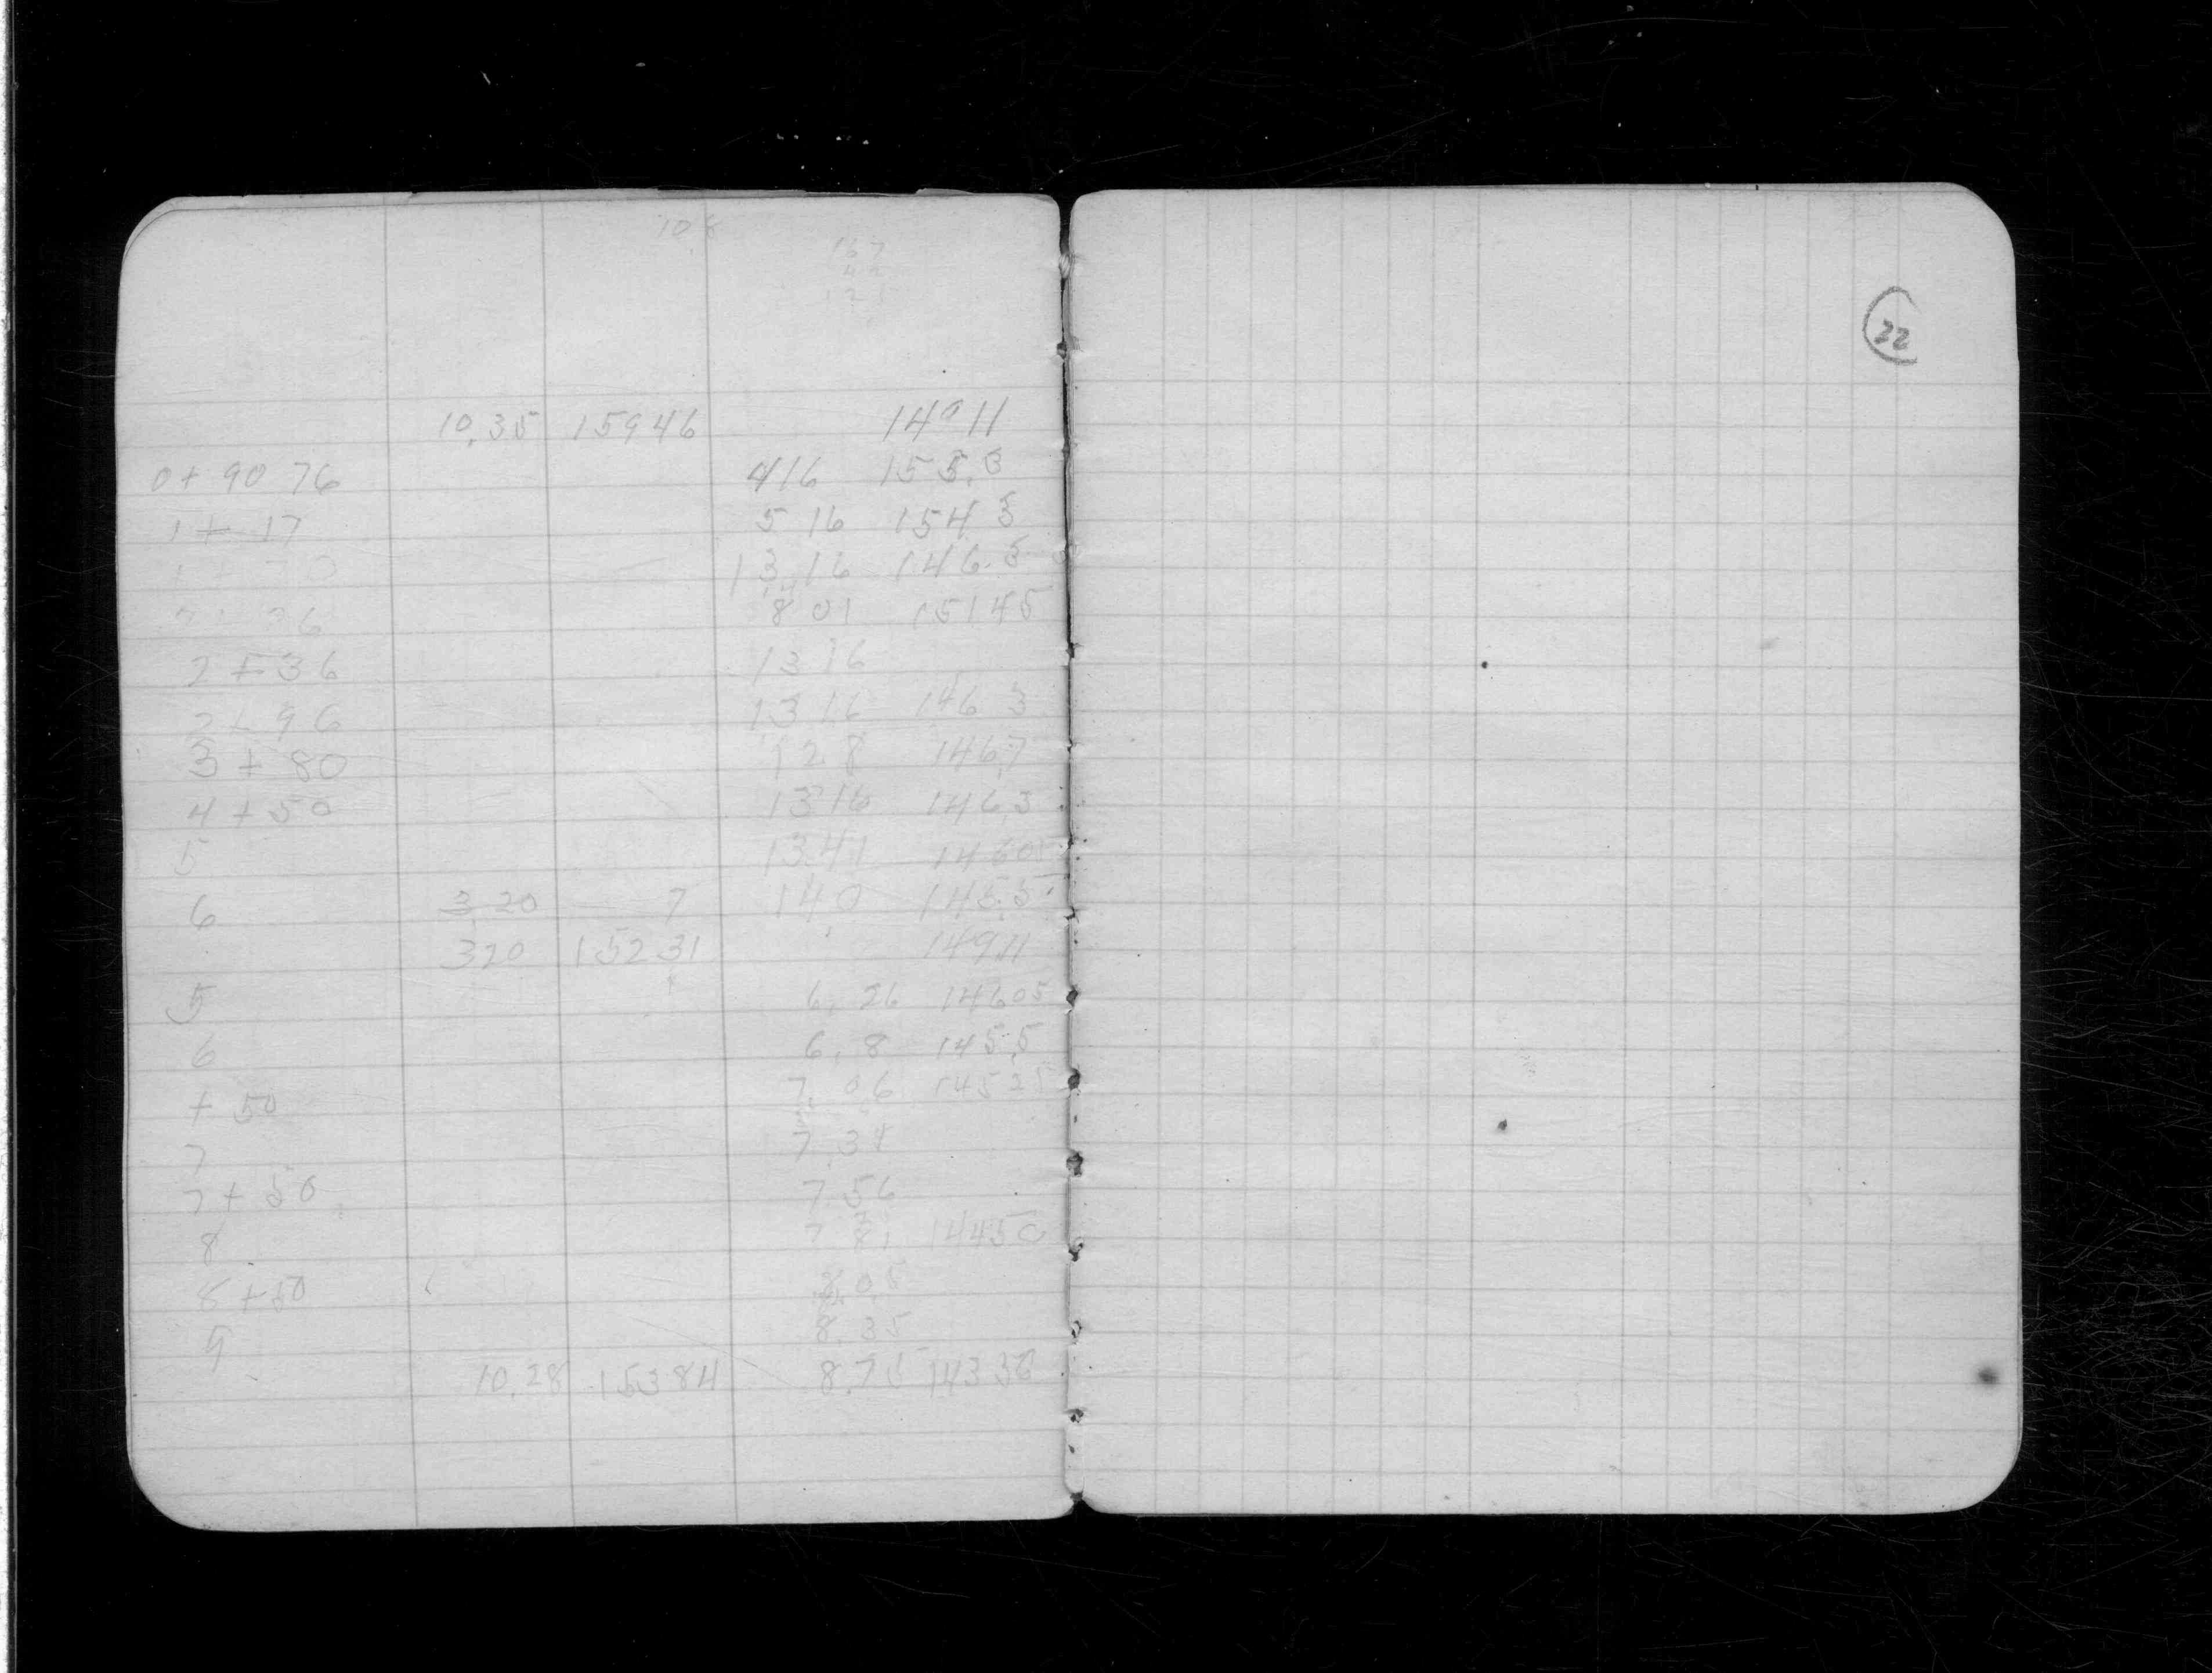 10
167
22
10.35 159 46 149 11
0+ 90 76 4 16 155.3
1 + 17 5 16 154 3
13 16 146.3
8 01 151 45
2 + 36 13 16
2 + 96 13 16 146 3
3 + 80 12 8 146.7
4 + 50 13 16 146.3
5 13.41 146 05
6 3.20 7 14 0 145.5
3 20 152 31 149.11
5 6.26 146 05
6 6.8 145.5
+ 50 7.06 145 25
7 7.31
7 + 50 7.56
8 7 81 144 50
8 + 50 8.05
9 8.35
10.28 153 84 8.75 143 36